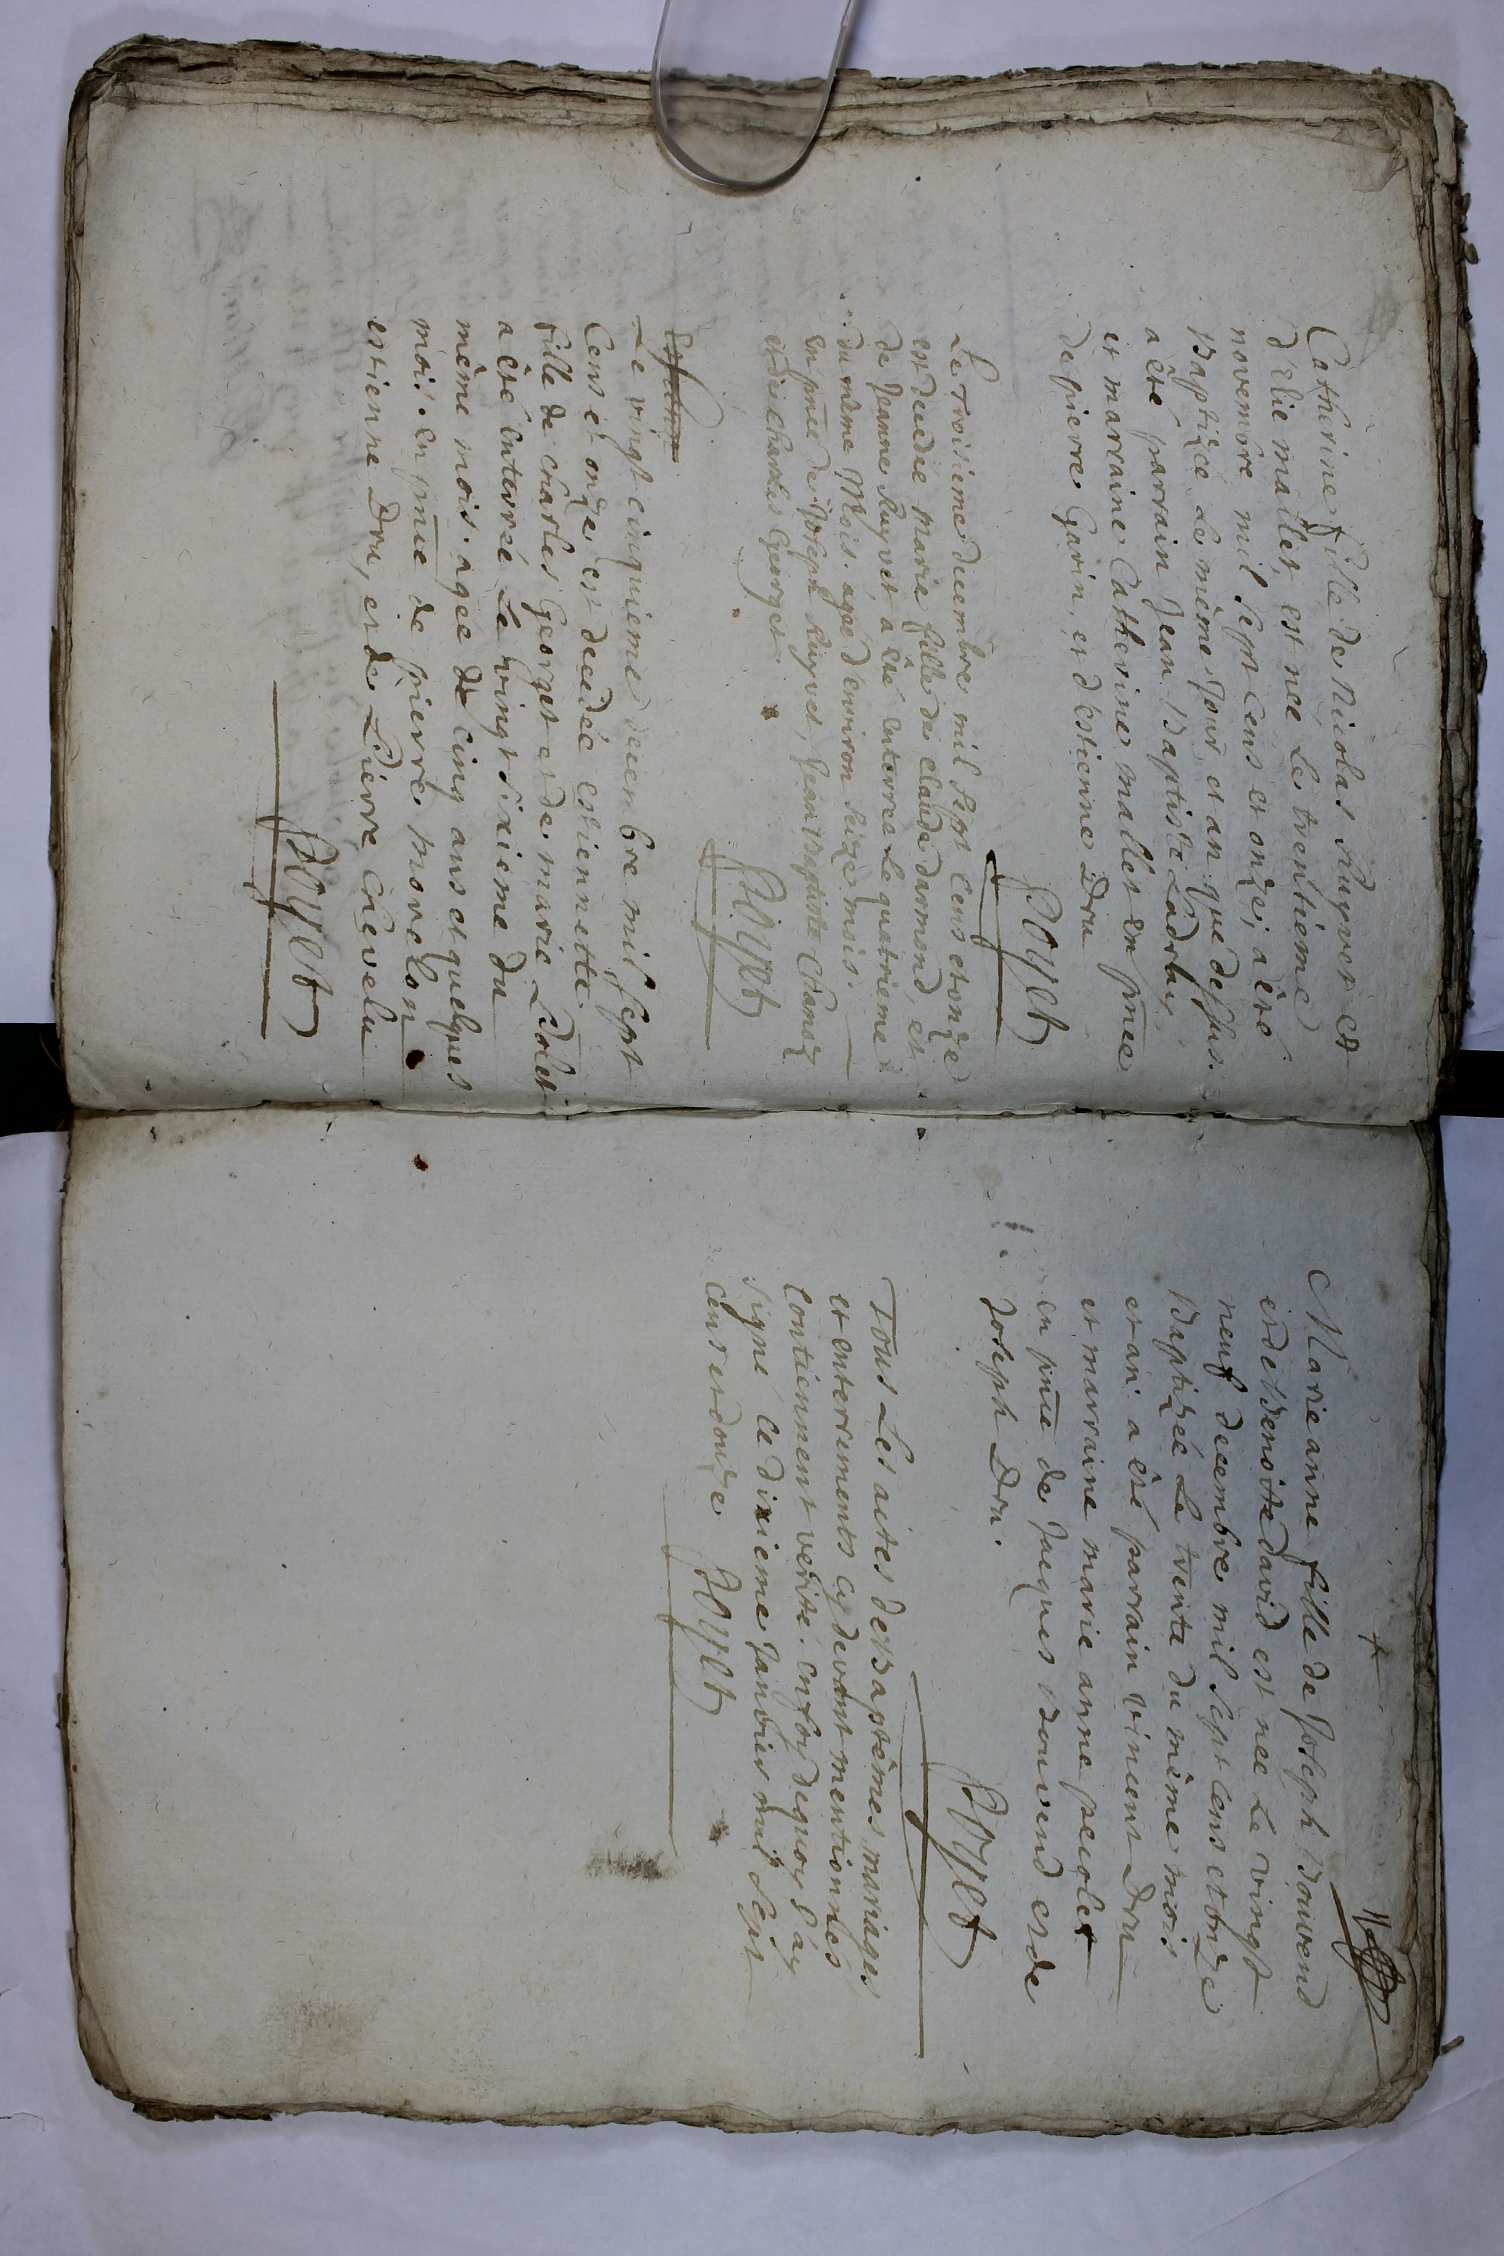 Catherine fille de Nicolas Ruyvet et
d'elie mallet, est neé le trentieme
novembre mil sept cens et onze, a èté
Baptizeé le mème jour et an que dessus.
a èté parrain jean Baptiste
et marraine Catherine mallet en pnce
de pierre Garin, et d'estienne Dru
Poyet
Le Troisieme decembre mil sept cens et onze
est decedeé marie fille de claude darmand, et
de Jeanne Ruyvet a èté enterreé le quatrieme
du mème Mois. ageé d'environ seize mois.
en pnce de joseph Ruyvet, jean Baptiste
et de charles Georget
Poyet
Le vingt cinquieme decembre mil sept
Cens et onze est decedeé estiennette
fille de charles Georget et de marie
a èté enterreé le vingt sixieme du
mème mois. ageé de cinq ans et quelques
mois. en pnce de pierre morelon
estienne Dru, et de Pierre chevelu
Poyet
Marie anne fille de joseph Bouvend
et de Benoitte david est neé le vingt
neuf decembre mil sept cens et onze
Baptizeé le trente du mème mois
et an. a èté parrain vincent Dru
et marraine marie anne pecolet
en pnce de jacques Bouvend et de
joseph Dru.
Poyet
Tous les actes de Baptêmes, mariages
et enterrements cy devant mentionnés
contiennent verité. en foy dequoy j'ay
signé ce dixieme janvier mil sept
cens et douze Poyet